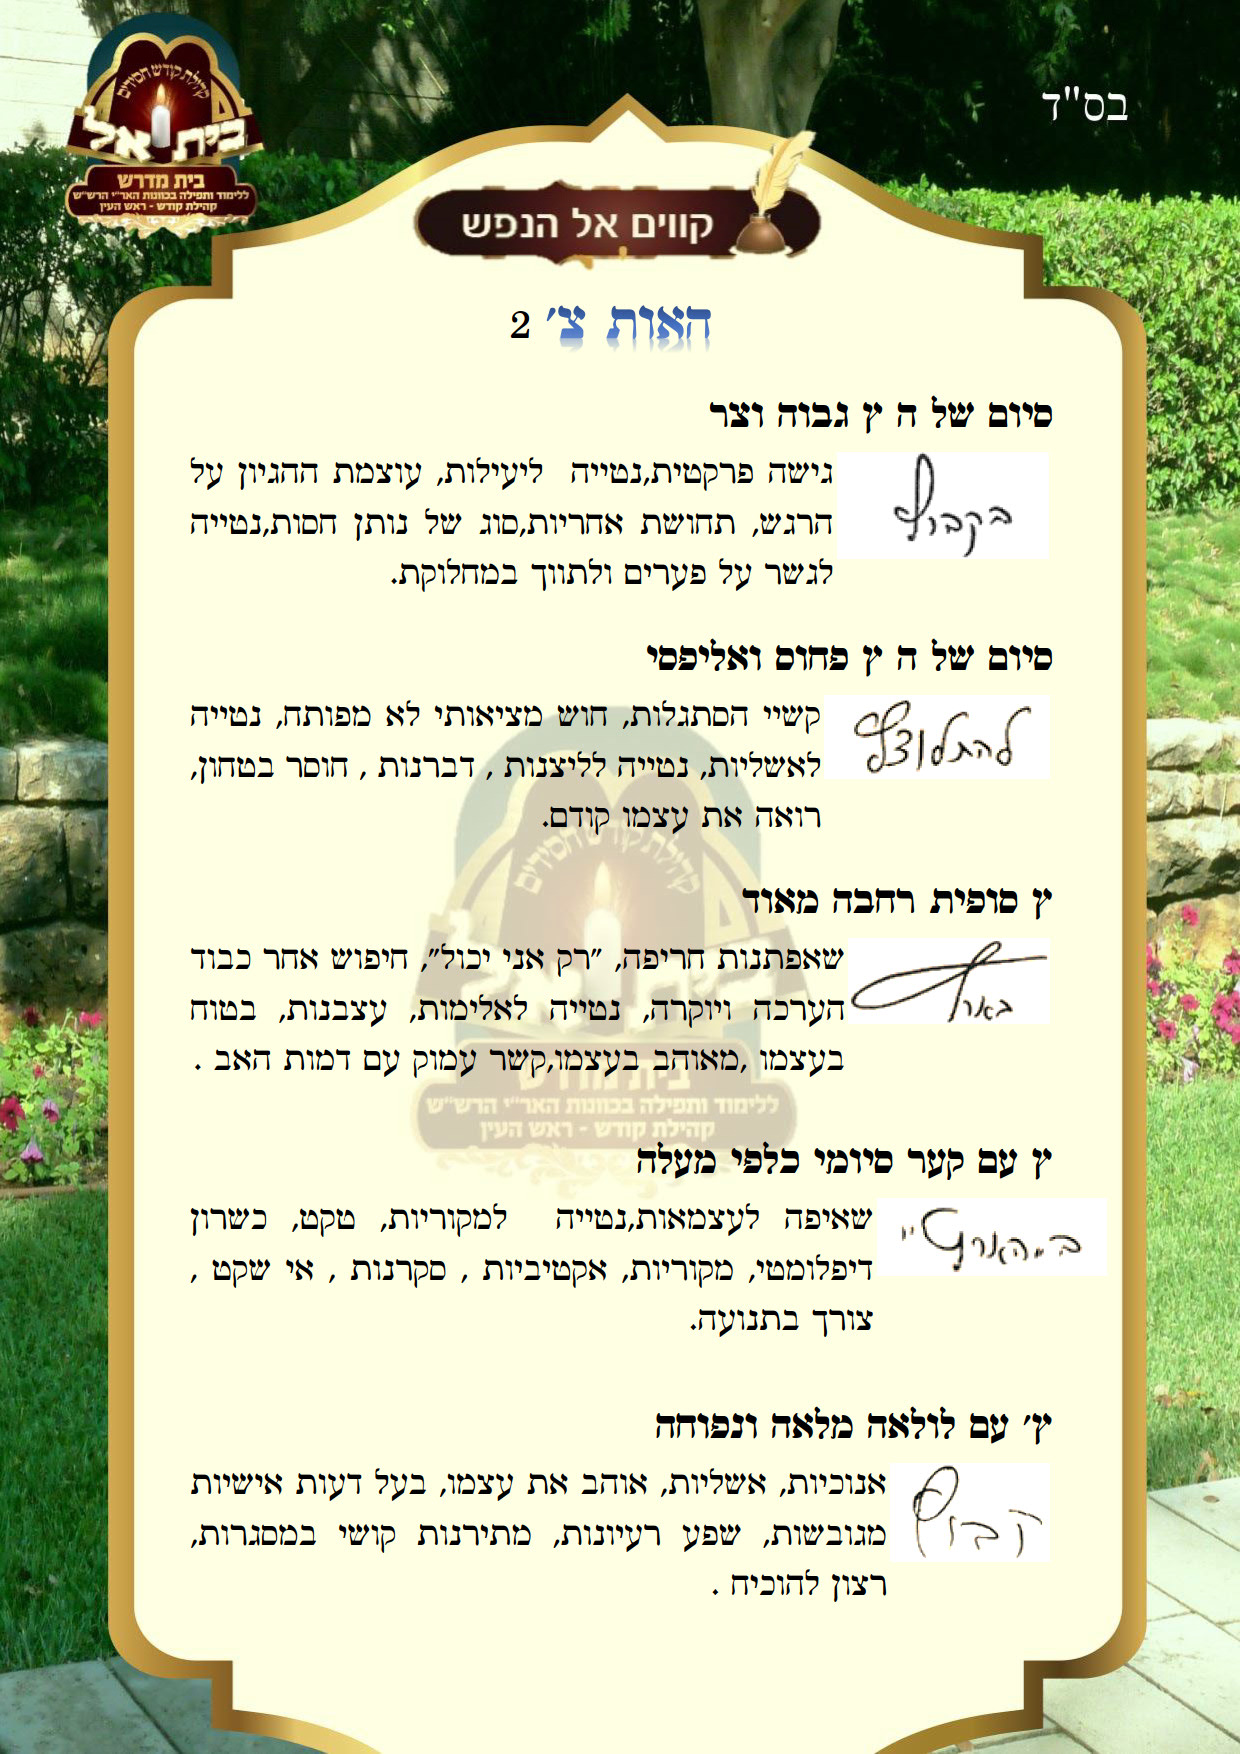 בס"ד
קהילת קודש חסידים
בית אל
בית מדרש
ללימוד ותפילה בכוונות האר"י הרש"ש
קהילת קודש - ראש העין
קווים אל הנפש
האות צ' 2
סיום של ה ץ גבוה וצר
גישה פרקטית,נטייה ליעילות, עוצמת ההגיון על
הרגש, תחושת אחריות,סוג של נותן חסות,נטייה
לגשר על פערים ולתווך במחלוקת.
בקבוץ
סיום של ה ץ פחוס ואליפסי
קשיי הסתגלות, חוש מציאותי לא מפותח, נטייה
לאשליות, נטייה לליצנות , דברנות , חוסר בטחון,
רואה את עצמו קודם.
להתלוצץ
ץ סופית רחבה מאוד
שאפתנות חריפה, "רק אני יכול", חיפוש אחר כבוד
הערכה ויוקרה, נטייה לאלימות, עצבנות, בטוח
בעצמו ,מאוהב בעצמו,קשר עמוק עם דמות האב .
בארץ
ץ עם קער סיומי כלפי מעלה
שאיפה לעצמאות,נטייה למקוריות, טקט, כשרון
דיפלומטי, מקוריות, אקטיביות , סקרנות , אי שקט ,
צורך בתנועה.
ב"הארץ"
ץ' עם לולאה מלאה ונפוחה
אנוכיות, אשליות, אוהב את עצמו, בעל דעות אישיות
מגובשות, שפע רעיונות, מתירנות קושי במסגרות,
רצון להוכיח .
קבוץ
קהילת קודש חסידים
בית אל
בית מדרש
ללימוד ותפילה בכוונות האר"י הרש"ש
קהילת קודש - ראש העין